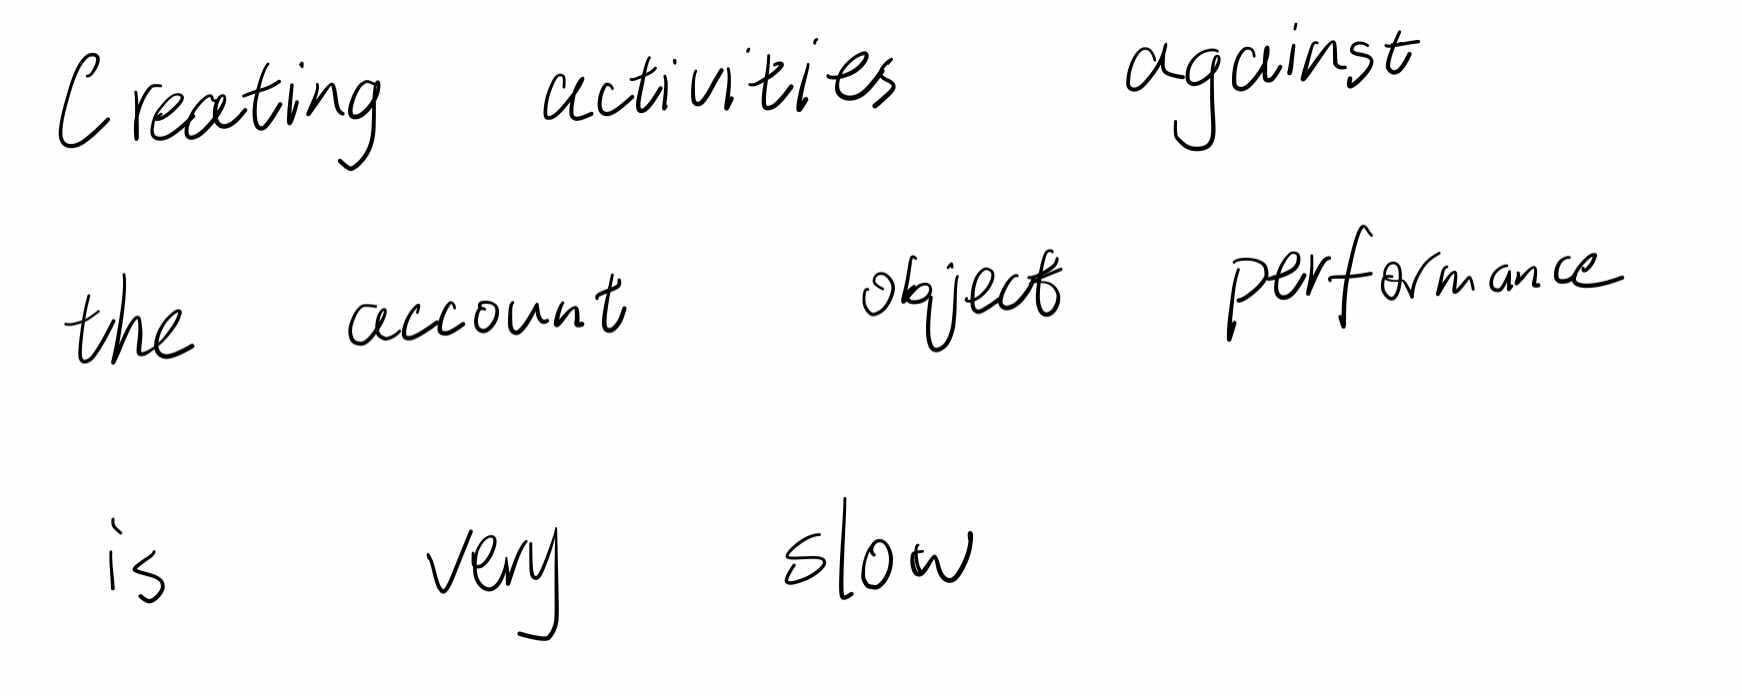 Creating activities against
the account object performance
is very slow